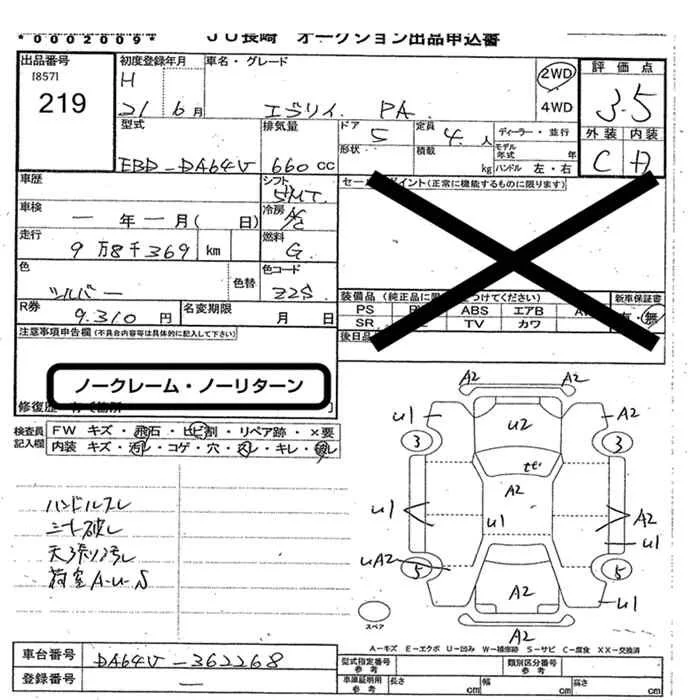 *0002009*
JU長崎 オークション出品申込書
出品番号 初度登録年月 車名・グレード 評価点
[857] H 2WD
219 21 6月 エブリイ PA 4WD 3.5
型式 排気量 ドア 5 定員 4人 ディーラー・並行 外装 内装
形状 積載 kg モデル年式 年 C A
EBD-DA64V 660cc ハンドル 左・右
車歴 シフト 5MT セールスポイント(正常に機能するものに限ります)
車検 ー年ー月( 日) 冷房 A/C
走行 9万8千369 km 燃料 G
色 シルバー 色替 色コード Z2S
装備品(純正品に つけてください) 新車保証書
PS ABS エアB 有・無
SR TV カワ
R券 9.310円 名変期限 月 日 後日品
注意事項申告欄(不具合内容等は具体的に記入して下さい)
ノークレーム・ノーリターン
修復歴
検査員記入欄 FW キズ・飛石・ヒビ割・リペア跡・×要
内装 キズ・汚レ・コゲ・穴・スレ・キレ・破レ
A2 A2
u1 u2 A2
3 3
A2
u1 u1 A2
u1
uA2
5 5
A2 u1
A2
ハンドルスレ
シート破レ
天張り汚レ
荷室A-u,S
スペア
A-キズ E-エクボ U-凹み W-補修跡 S-サビ C-腐食 XX-交換済
車台番号 DA64V-362268 型式指定番号 参考 類別区分番号 参考
登録番号 ー 車庫証明用 参考 長さ cm 幅 cm 高さ cm